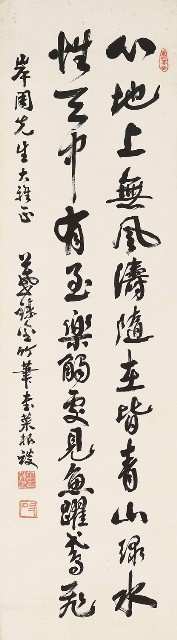 心地上無風濤隨在皆青山綠水
性天中有至樂觸處見魚躍鳶飛
先生大雅正
書菜根